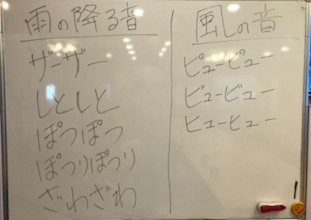 雨の降る音
ザーザー
しとしと
ぽつぽつ
ぽつりぽつり
ざわざわ
風の音
ピューピュー
ビュービュー
ヒューヒュー